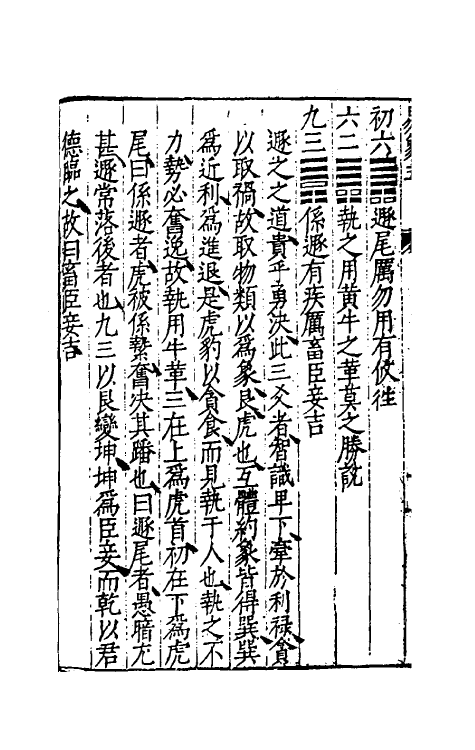 初六遯尾厲勿用有攸往
六二執之用黃牛之革莫之勝說
九三係遯有疾厲畜臣妾吉
遯之之道貴乎勇決此三爻者智識卑下牽於利祿貪
以取禍故取物類以為象艮虎也互體約象皆得巽巽
為近利為進退是虎豹以貪食而見執于人也執之不
力勢必奮逸故執用牛革三在上為虎首初在下為虎
尾曰係遯者虎被係縶奮決其蹯也曰遯尾者愚暗尤
甚遯常落後者也九三以艮變坤坤為臣妾而乾以君
德臨之故曰畜臣妾吉